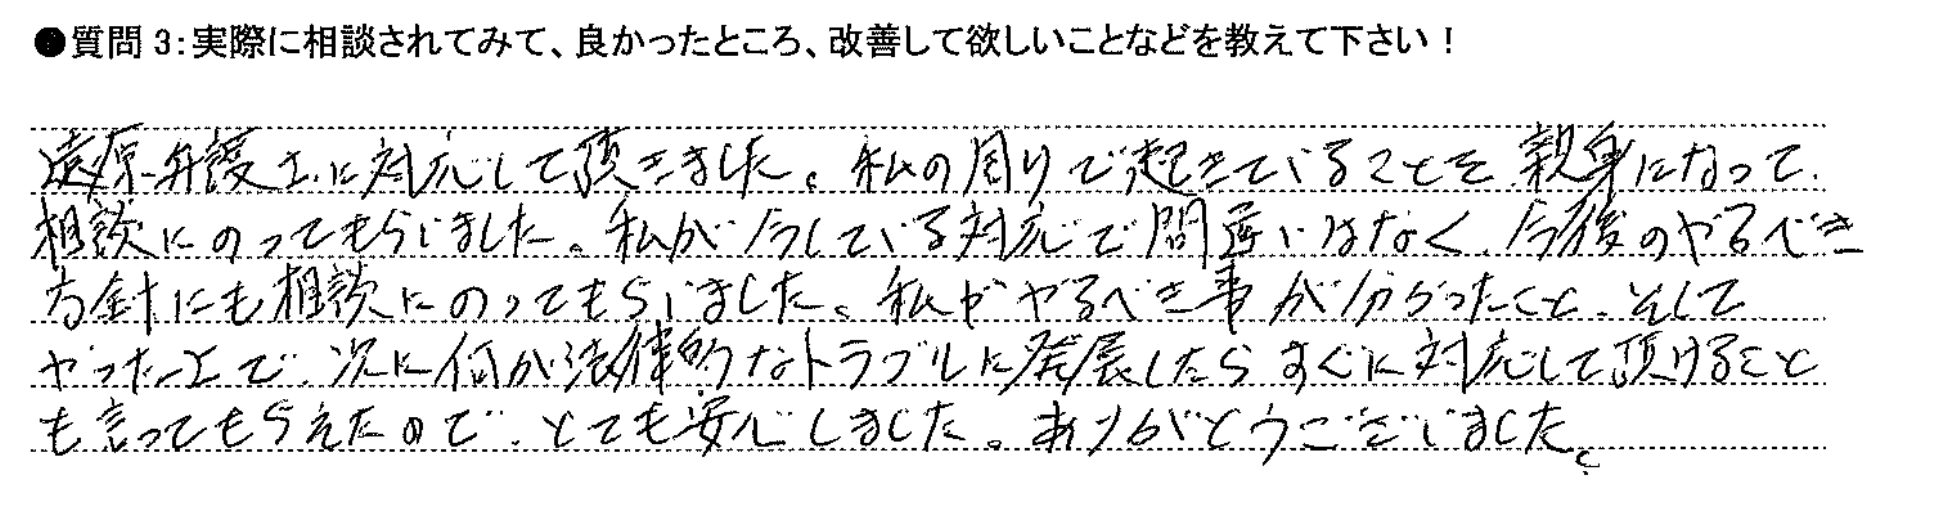 ●質問 3：実際に相談されてみて、良かったところ、改善して欲しいことなどを教えて下さい！
遠原弁護士に対応して頂きました。私の周りで起きていることを、親身になって、
相談にのってもらいました。私が今している対応で間違いはなく、今後のやるべき
方針にも相談にのってもらいました。私がやるべき事が分かったこと、そして
やった上で、次に何か法律的なトラブルに発展したらすぐに対応して頂けること
も言ってもらえたので、とても安心しました。ありがとうございました。